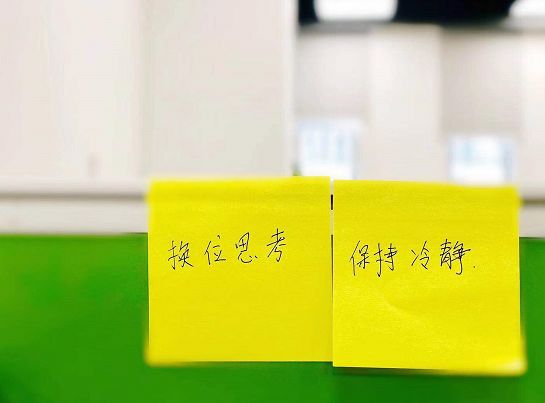 换位思考
保持冷静.